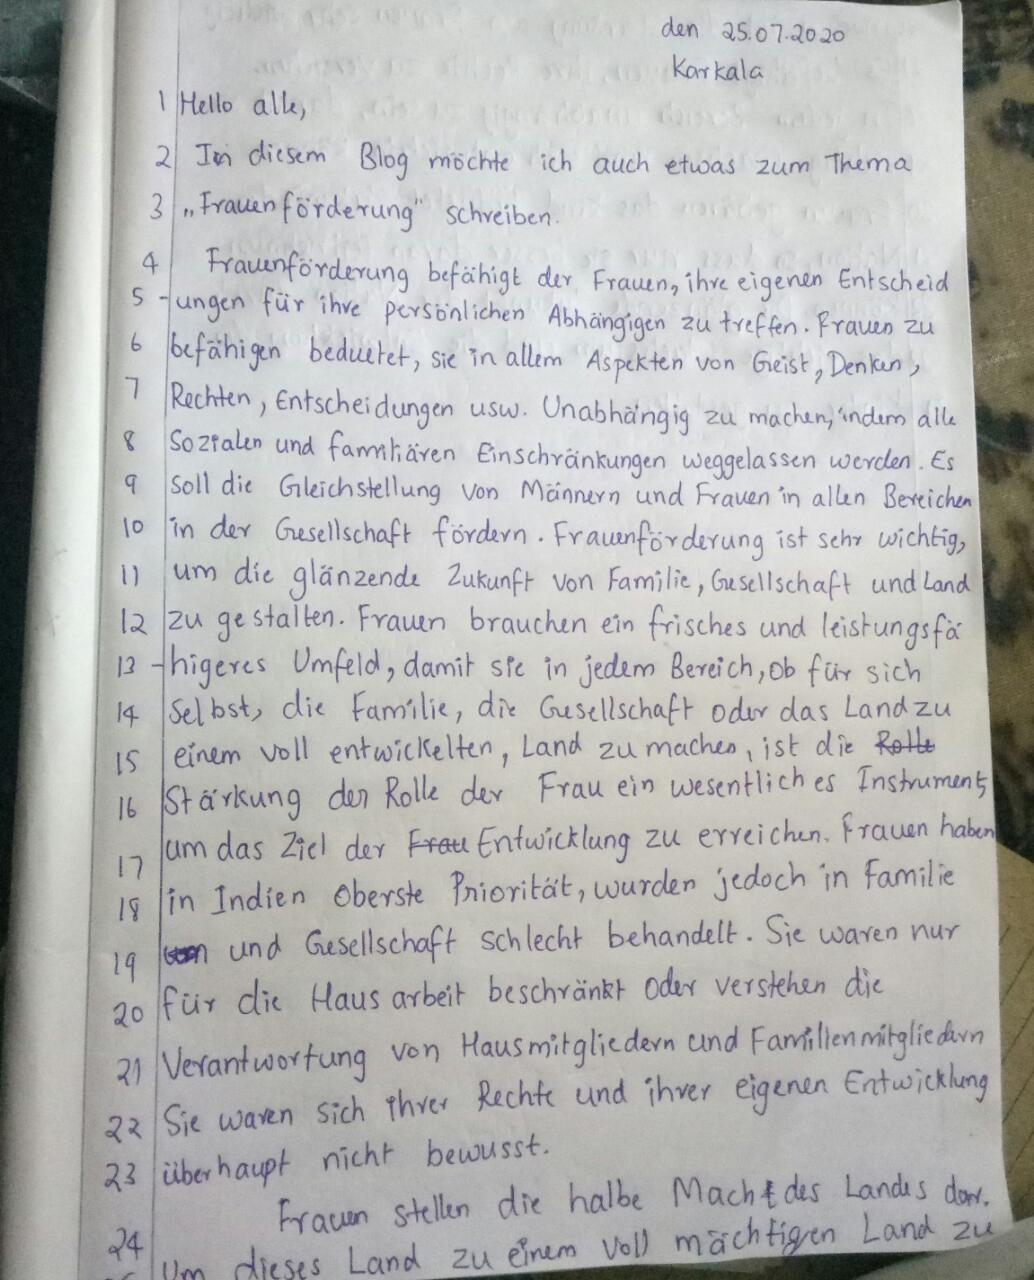 den 25.07.2020
Karkala
1 Hello alle,
2 In diesem Blog möchte ich auch etwas zum Thema
3 „Frauenförderung" schreiben.
4 Frauenförderung befähigt der Frauen, ihre eigenen Entscheid
5 -ungen für ihre persönlichen Abhängigen zu treffen. Frauen zu
6 befähigen beduetet, sie in allem Aspekten von Geist, Denken,
7 Rechten, Entscheidungen usw. Unabhängig zu machen, indem alle
8 Sozialen und familiären Einschränkungen weggelassen werden. Es
9 soll die Gleichstellung von Männern und Frauen in allen Bereichen
10 in der Gesellschaft fördern. Frauenförderung ist sehr wichtig,
11 um die glänzende Zukunft von Familie, Gesellschaft und Land
12 zu gestalten. Frauen brauchen ein frisches und leistungsfä
13 -higeres Umfeld, damit sie in jedem Bereich, ob für sich
14 Selbst, die Familie, die Gesellschaft oder das Land zu
15 einem voll entwickelten, Land zu machen, ist die Rolle
16 Stärkung der Rolle der Frau ein wesentliches Instrument,
17 um das Ziel der Frau Entwicklung zu erreichen. Frauen haben
18 in Indien Oberste Priorität, wurden jedoch in Familie
19 und Gesellschaft schlecht behandelt. Sie waren nur
20 für die Hausarbeit beschränkt oder verstehen die
21 Verantwortung von Hausmitgliedern und Familienmitgliedern
22 Sie waren sich ihrer Rechte und ihrer eigenen Entwicklung
23 überhaupt nicht bewusst.
24 Frauen stellen die halbe Macht des Landes dar.
Um dieses Land zu einem voll mächtigen Land zu